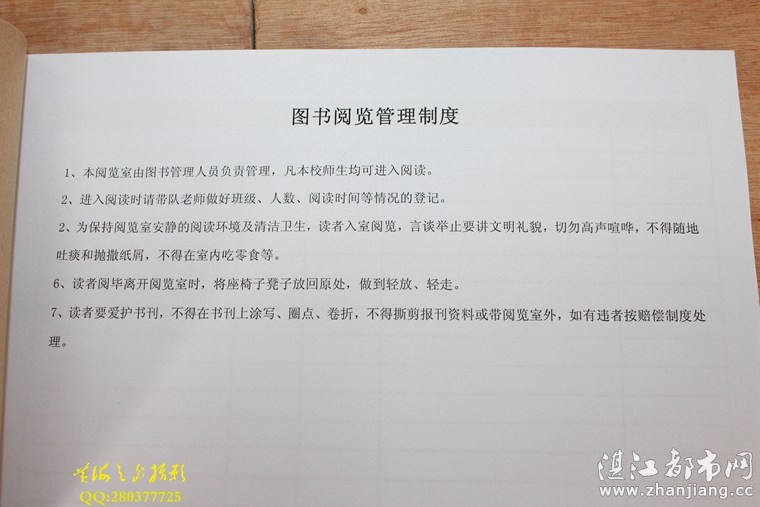 图书阅览管理制度
1、本阅览室由图书管理人员负责管理，凡本校师生均可进入阅读。
2、进入阅读时请带队老师做好班级、人数、阅读时间等情况的登记。
2、为保持阅览室安静的阅读环境及清洁卫生，读者入室阅览，言谈举止要讲文明礼貌，切勿高声喧哗，不得随地
吐痰和抛撒纸屑，不得在室内吃零食等。
6、读者阅毕离开阅览室时，将座椅子凳子放回原处，做到轻放、轻走。
7、读者要爱护书刊，不得在书刊上涂写、圈点、卷折，不得撕剪报刊资料或带阅览室外，如有违者按赔偿制度处
理。
QQ:280377725
湛江都市网
www.zhanjiang.cc